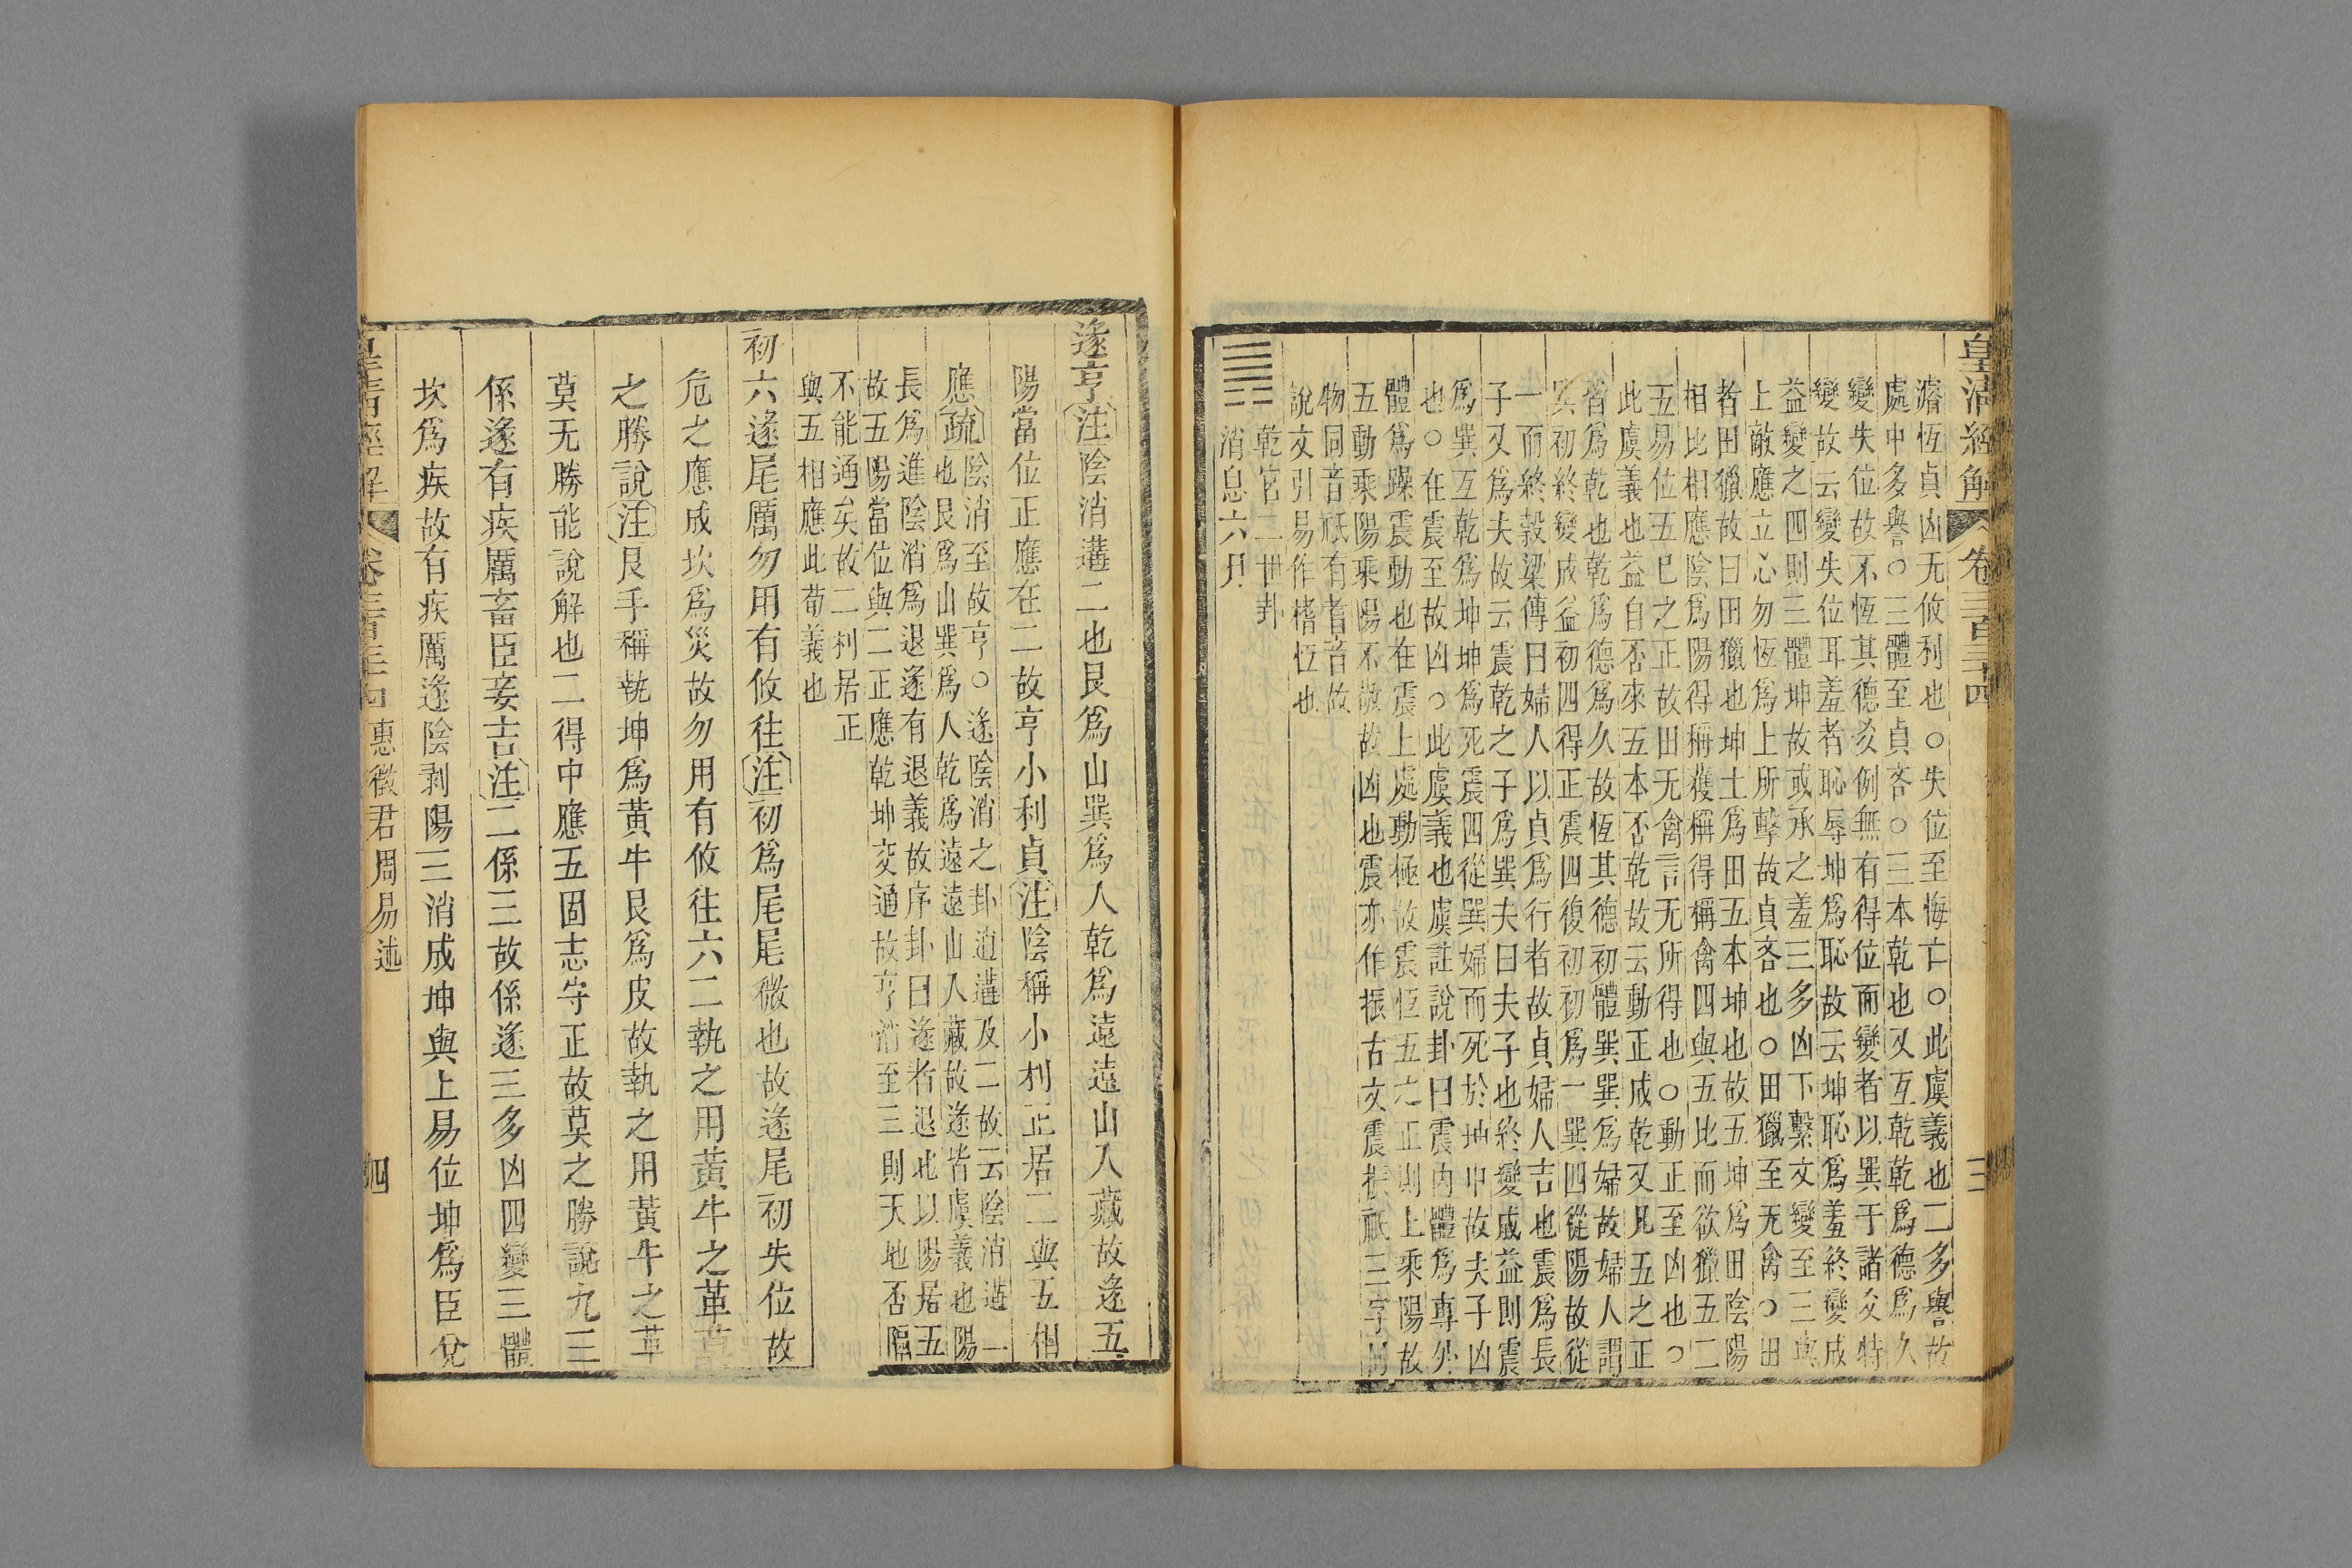 皇清經解 卷三百三十四 三
濬恆貞凶无攸利也○失位至悔亡○此虞義也二多譽故
處中多譽○三體至貞吝○三本乾也又互乾乾爲德爲久
變失位故不恆其德爻例無有得位而變者以巽于諸爻特
變故云變失位耳羞者恥辱坤爲恥故云坤恥爲羞終變成
益變之四則三體坤故或承之羞三多凶下繫文變至三與
上敵應立心勿恆爲上所擊故貞吝也○田獵至无禽○田
者田獵故曰田獵也坤土爲田五本坤也故五坤爲田陰陽
相比相應陰爲陽得稱獲稱得稱禽四與五比而欲獵五二
五易位五已之正故田无禽言无所得也○動正至凶也○
此虞義也益自否來五本否乾故云動正成乾又見五之正
皆爲乾也乾爲德爲久故恆其德初體巽巽爲婦故婦人謂
初終變成益初四得正震四復初初爲一巽四從陽故從
一而終穀梁傳曰婦人以貞爲行者故貞婦人吉也震爲長
子又爲夫故云震乾之子爲巽夫曰夫子也終變成益則震
爲巽互乾爲坤坤爲死震四從巽婦而死於坤中故夫子凶
也○在震至故凶○此虞義也虞註說卦曰震內體爲專外
體爲躁震動也在震上處動極故震恆五之正則上乘陽故
五動乘陽乘陽不敬故凶也震亦作振古文震振祇三字同
物同音祇有耆音故
說文引易作榰恆也
乾宮二世卦
消息六月
遂亨注陰消遘二也艮爲山巽爲人乾爲遠遠山入藏故遂五
陽當位正應在二故亨小利貞注陰稱小利正居二與五相
應疏陰消至故亨○遂陰消之卦逍遘及二故云陰消遘二
也艮爲山巽爲人乾爲遠遠山入藏故遂皆虞義也陽
長爲進陰消爲退遂有退義故序卦曰遂者退也以陽居五
故五陽當位與二正應乾坤交通故亨消至三則天地否隔
不能通矣故二利居正
與五相應此荀義也
初六遂尾厲勿用有攸往注初爲尾尾微也故遂尾初失位故
危之應成坎爲災故勿用有攸往六二執之用黃牛之革莫
之勝說注艮手稱執坤爲黃牛艮爲皮故執之用黃牛之革
莫无勝能說解也二得中應五固志守正故莫之勝說九三
係遂有疾厲畜臣妾吉注二係三故係遂三多凶四變三體
坎爲疾故有疾厲遂陰剥陽三消成坤與上易位坤爲臣兌
皇清經解 卷三百三十四 惠徵君周易述 四